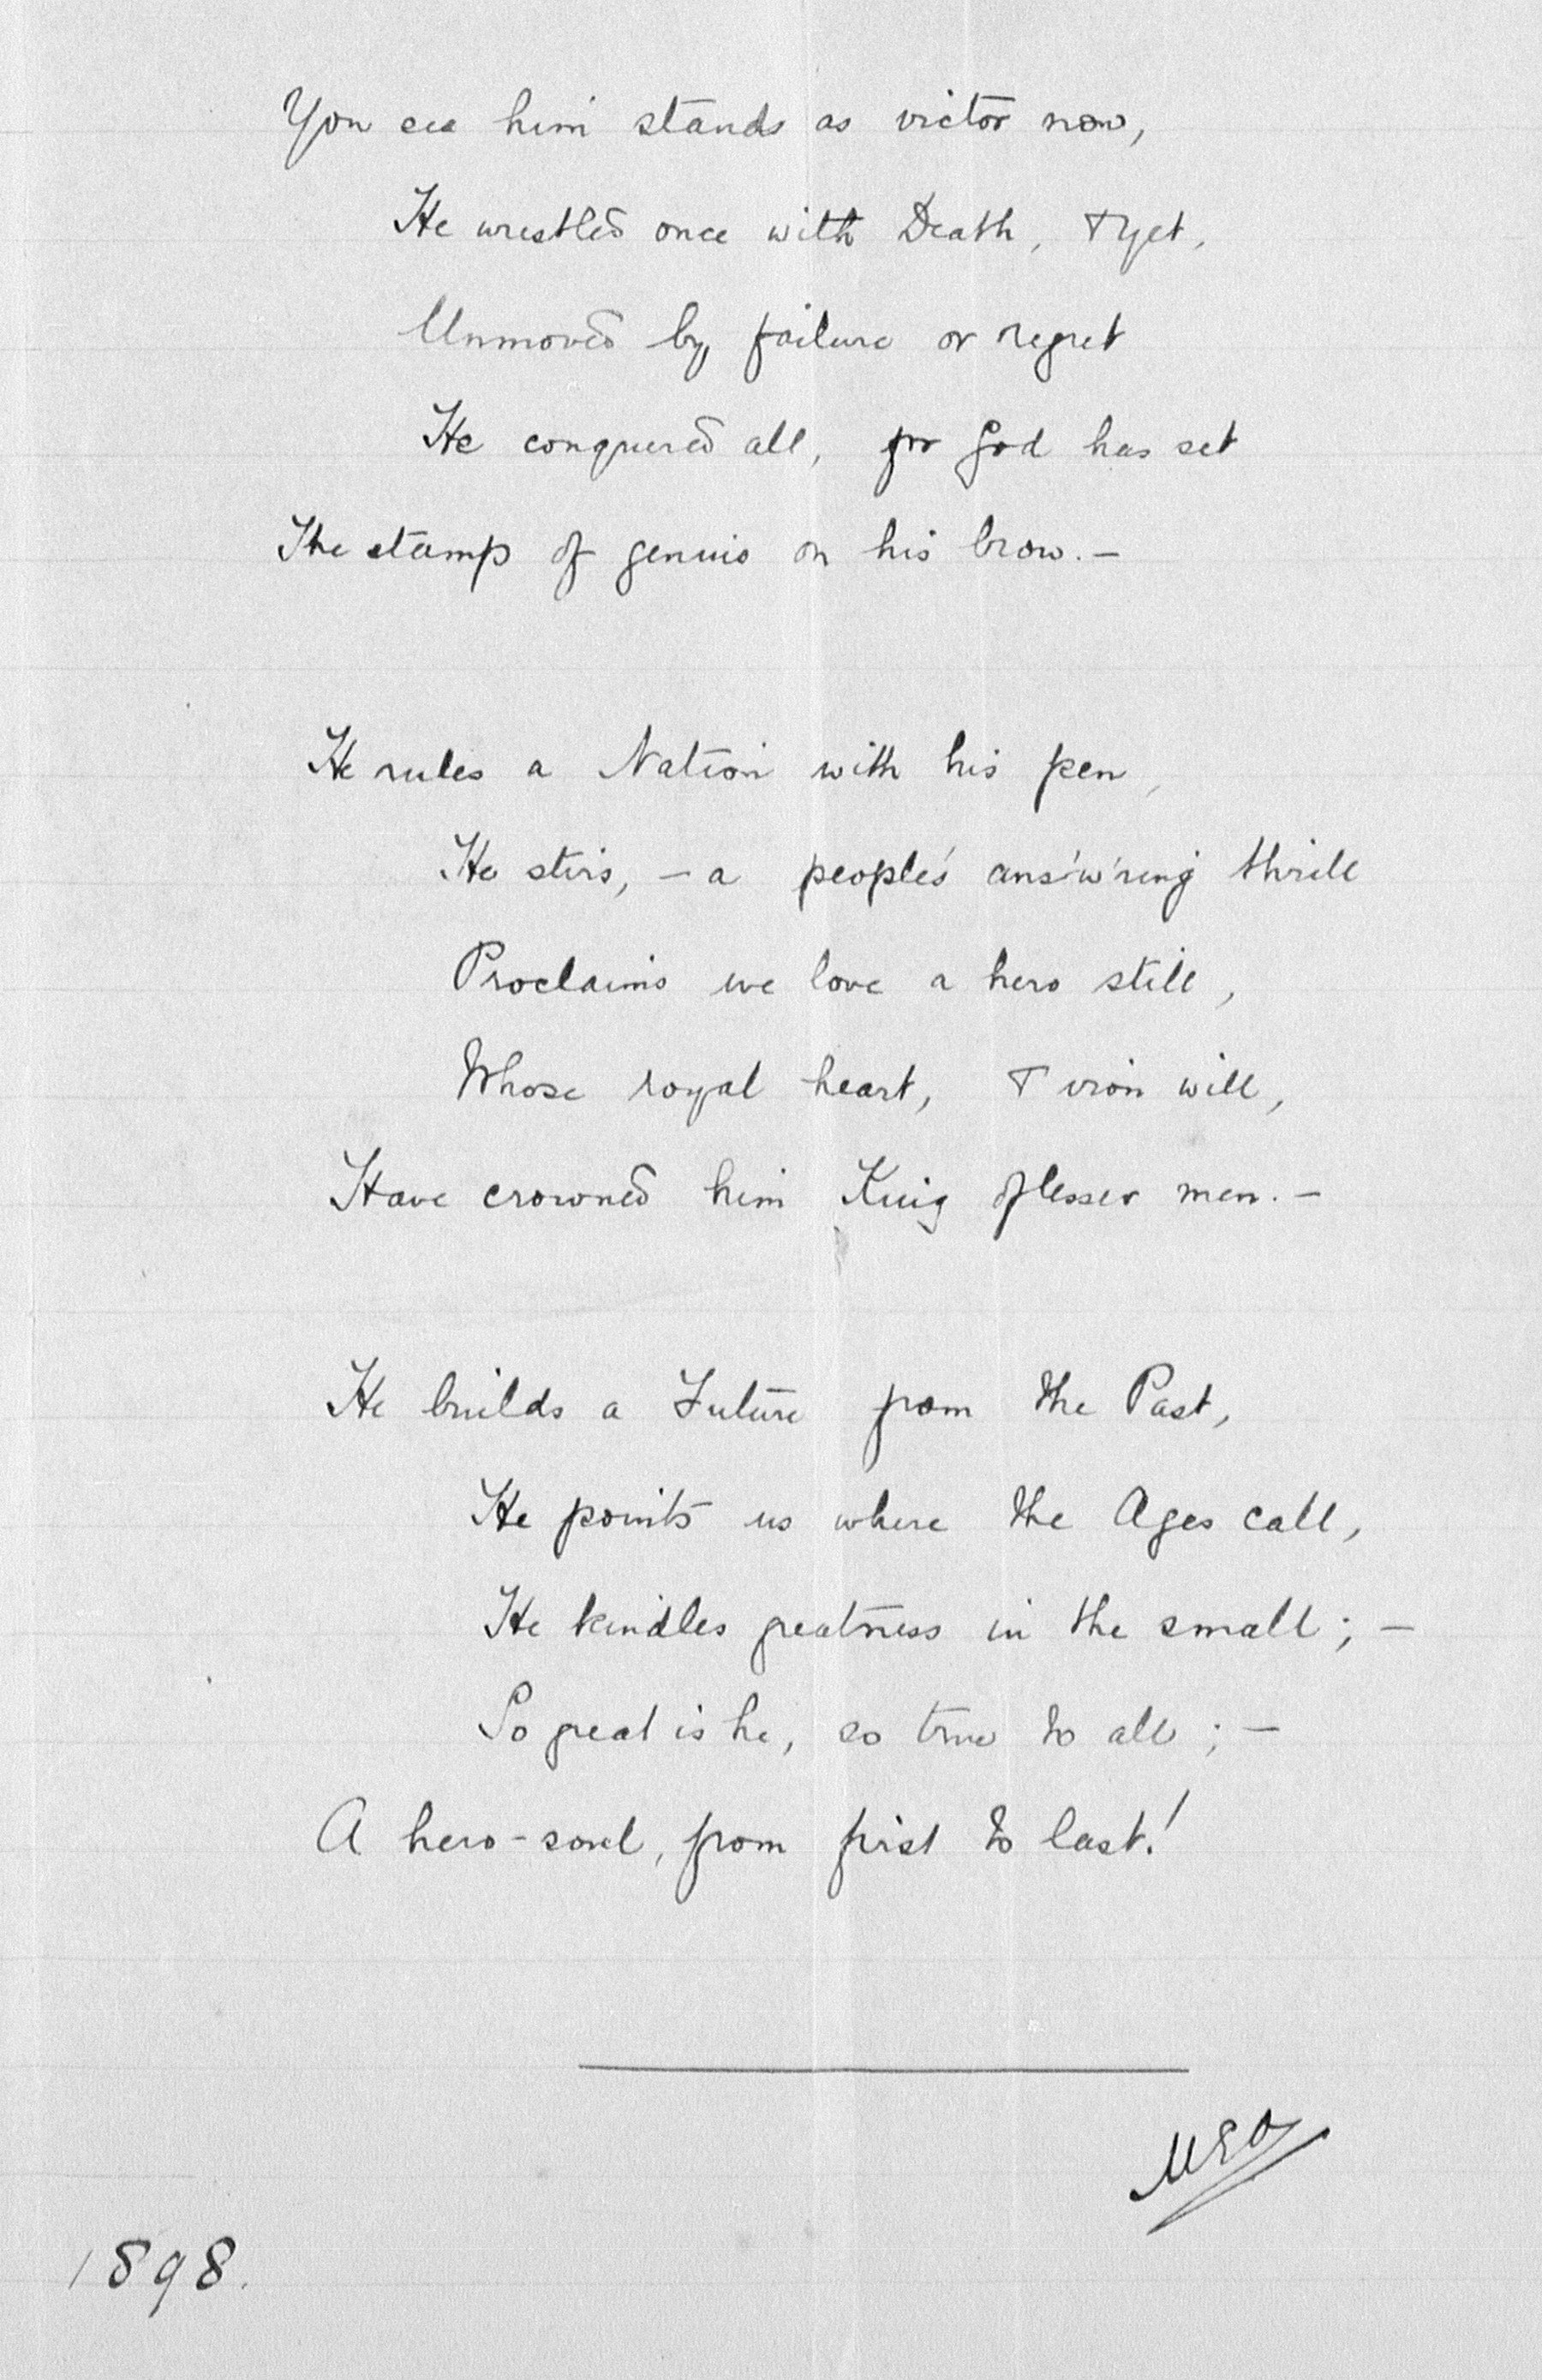 You see him stands as victor now,
He wrestled once with Death, & yet,
Unmoved by failure or regret
He conquered all, for God has set
The stamp of genius on his brow. –
He rules a Nation with his pen,
He stirs, – a people's ans'w'ring thrill
Proclaims we love a hero still,
Whose royal heart, & iron will,
Have crowned him King of lesser men. –
He builds a Future from the Past,
He points us where the Ages call,
He kindles greatness in the small; –
So great is he, so true to all; –
A hero-soul, from first to last!
1898.